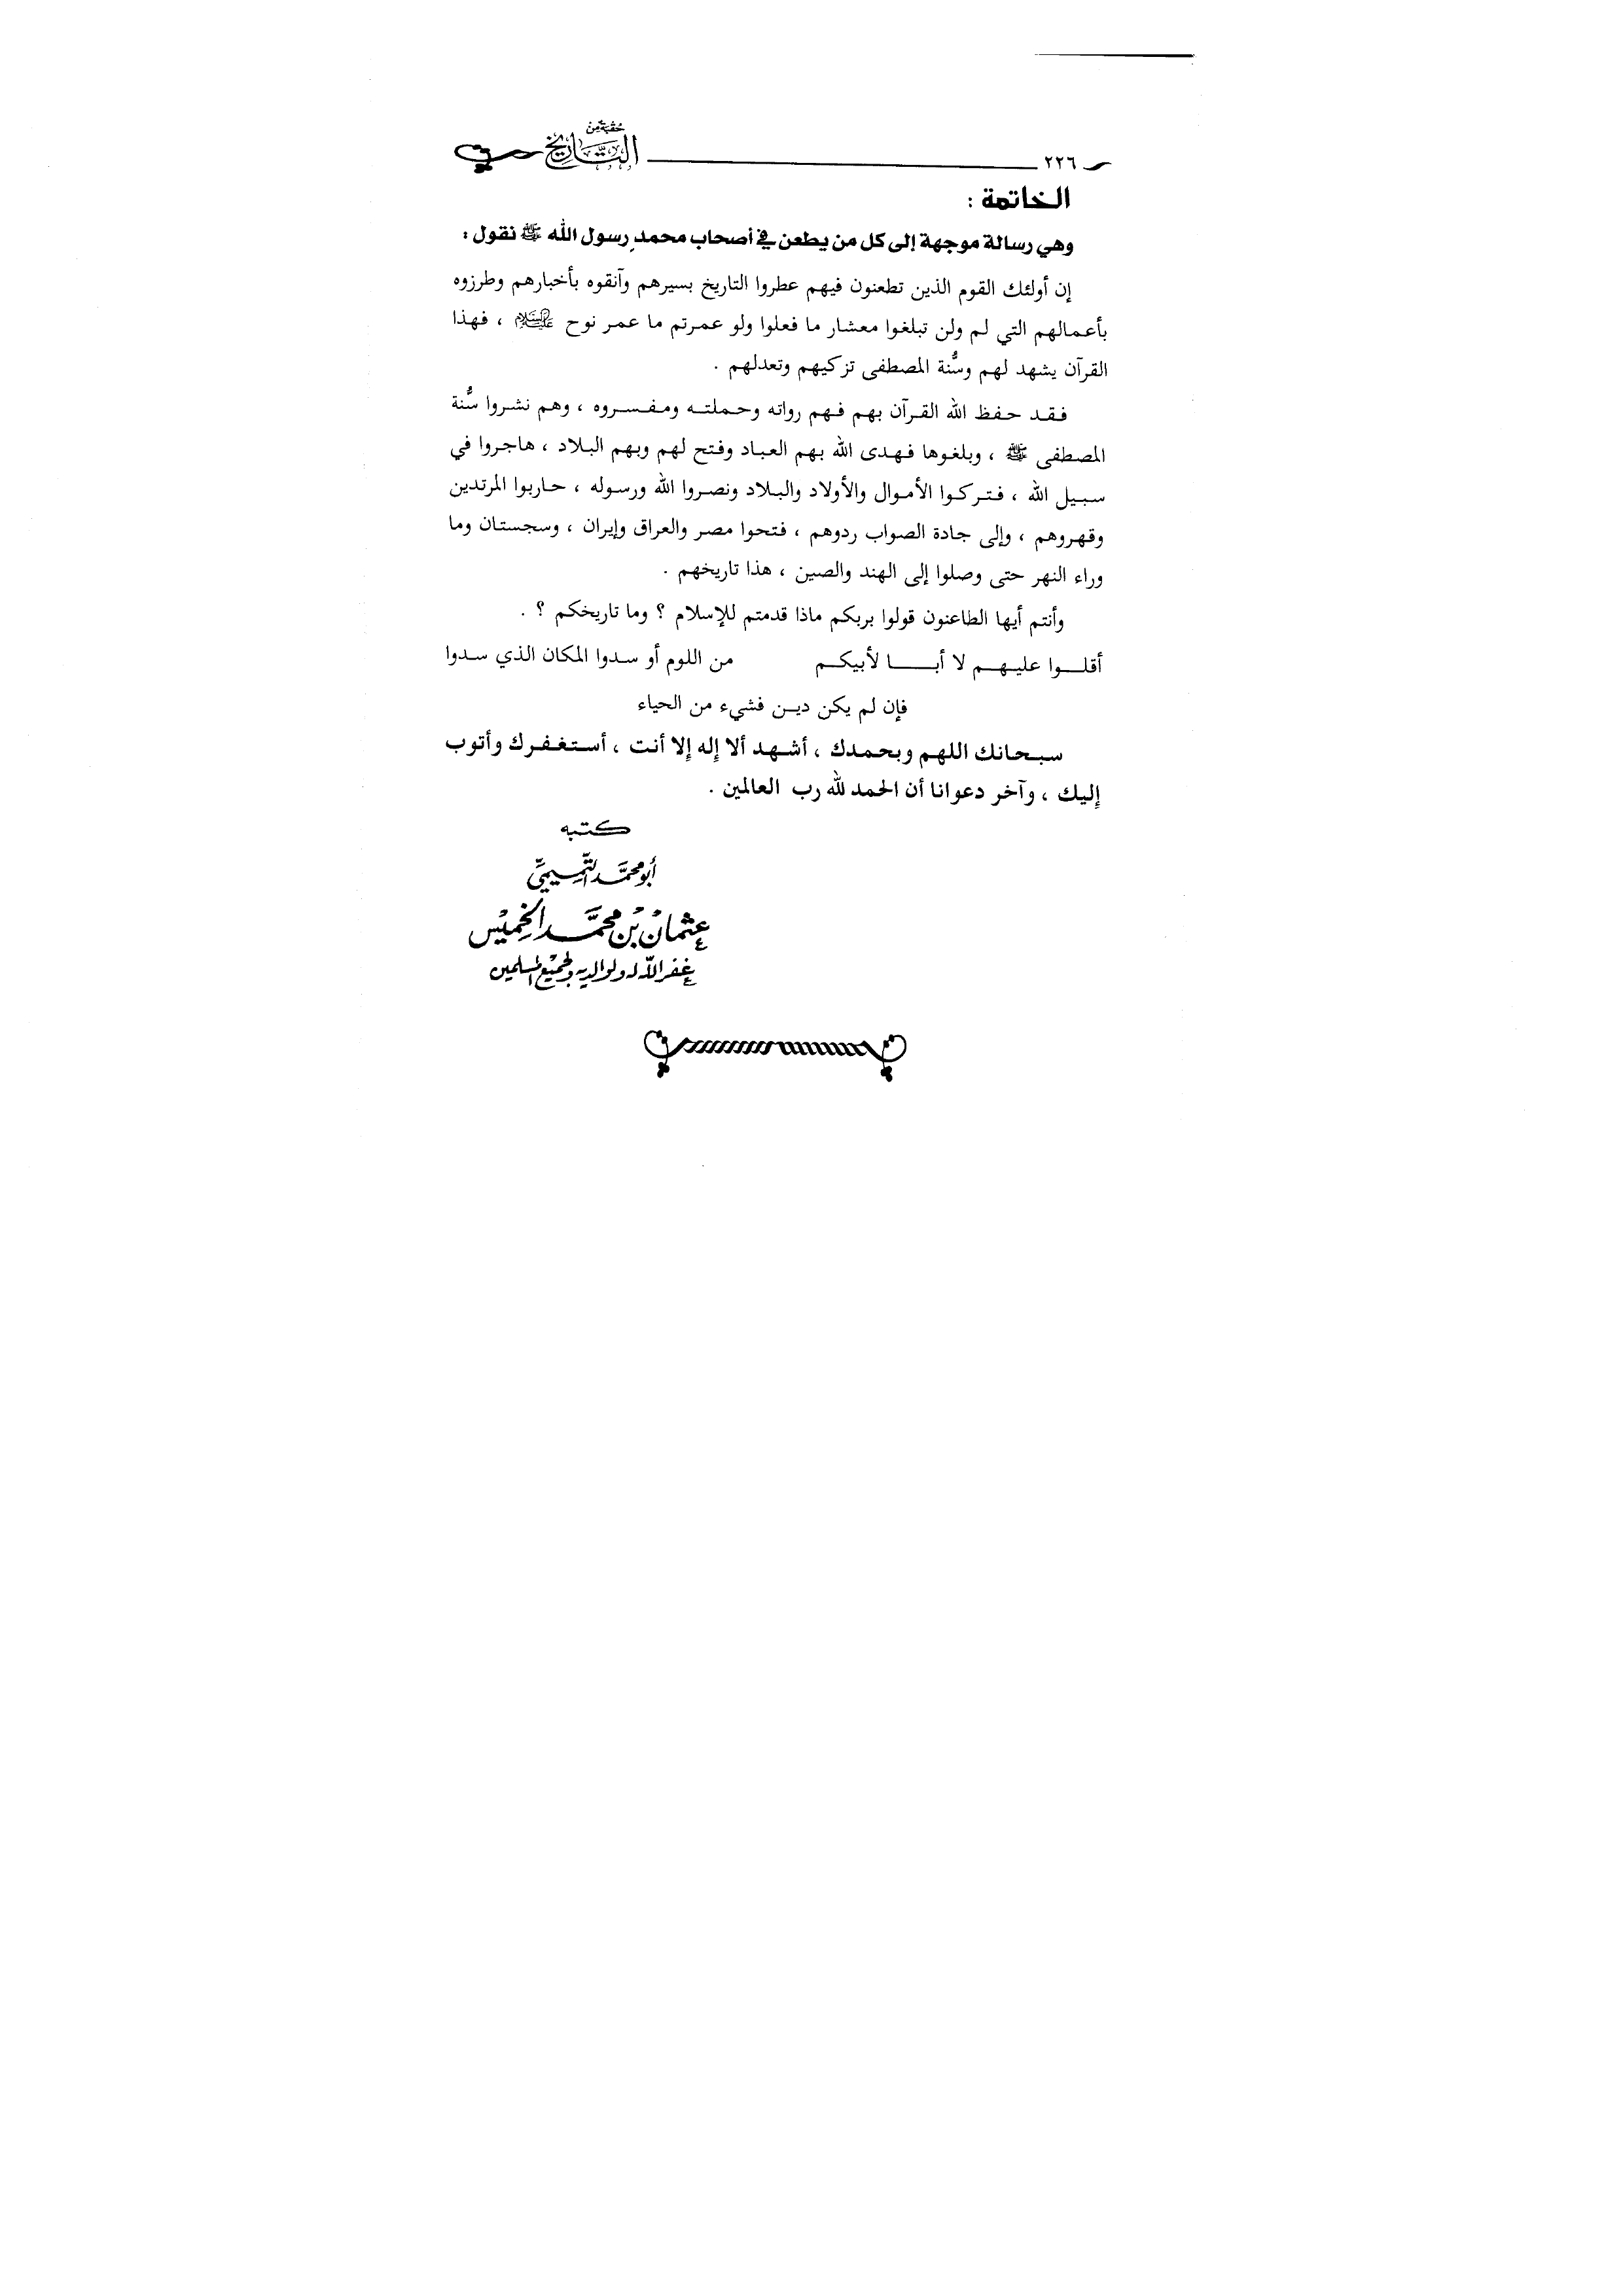 ٢٢٦
حقبة من
التاريخ
الخاتمة :
وهي رسالة موجهة إلى كل من يطعن في أصحاب محمدٍ رسول الله ﷺ نقول :
إن أولئك القوم الذين تطعنون فيهم عطروا التاريخ بسيرهم وآنقوه بأخبارهم وطرزوه
بأعمالهم التي لم ولن تبلغوا معشار ما فعلوا ولو عمرتم ما عمر نوح عليه السلام ، فهذا
القرآن يشهد لهم وسُّنة المصطفى تزكيهم وتعدلهم .
فقد حفظ الله القرآن بهم فهم رواته وحملته ومفسروه ، وهم نشروا سُّنة
المصطفى ﷺ ، وبلغوها فهدى الله بهم العباد وفتح لهم وبهم البلاد ، هاجروا في
سبيل الله ، فتركوا الأموال والأولاد والبلاد ونصروا الله ورسوله ، حاربوا المرتدين
وقهروهم ، وإلى جادة الصواب ردوهم ، فتحوا مصر والعراق وإيران ، وسجستان وما
وراء النهر حتى وصلوا إلى الهند والصين ، هذا تاريخهم .
وأنتم أيها الطاعنون قولوا بربكم ماذا قدمتم للإسلام ؟ وما تاريخكم ؟ .
أقلوا عليهم لا أبا لأبيكم من اللوم أو سدوا المكان الذي سدوا
فإن لم يكن دين فشيء من الحياء
سبحانك اللهم وبحمدك ، أشهد ألا إله إلا أنت ، أستغفرك وأتوب
إليك ، وآخر دعوانا أن الحمد لله رب العالمين .
كتبه
أبو محمَّد التَّميميّ
عثمان بن محمَّد الخميس
غفر الله له ولوالديه ولجميع المسلمين